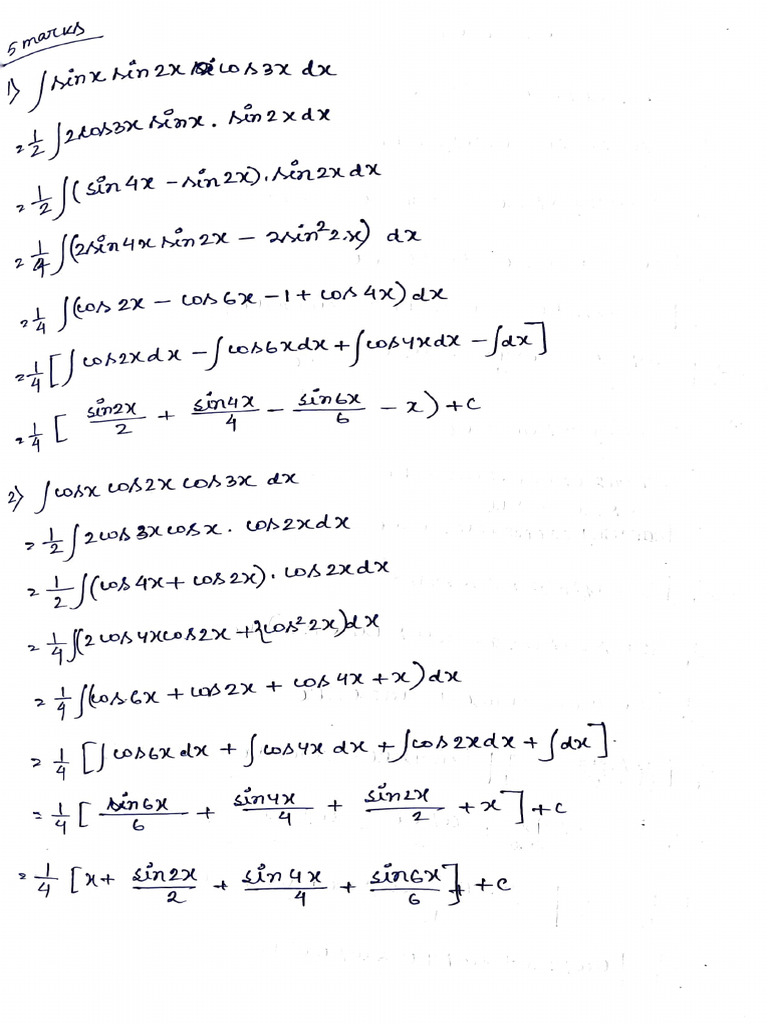 5 marks
1) ∫sinx sin2x cos3x dx
= 1/2 ∫2cos3x sinx . sin2x dx
= 1/2 ∫(sin4x - sin2x).sin2x dx
= 1/4 ∫(2sin4x sin2x - 2sin²2x) dx
= 1/4 ∫(cos2x - cos6x - 1 + cos4x) dx
= 1/4 [∫cos2x dx - ∫cos6x dx + ∫cos4x dx - ∫dx]
= 1/4 [ sin2x/2 + sin4x/4 - sin6x/6 - x) + c
2) ∫cosx cos2x cos3x dx
= 1/2 ∫2cos3x cosx . cos2x dx
= 1/2 ∫(cos4x + cos2x) . cos2x dx
= 1/4 ∫(2cos4x cos2x + 2cos²2x)dx
= 1/4 ∫(cos6x + cos2x + cos4x + x) dx
= 1/4 [∫cos6x dx + ∫cos4x dx + ∫cos2x dx + ∫dx].
= 1/4 [ sin6x/6 + sin4x/4 + sin2x/2 + x] + c
= 1/4 [x + sin2x/2 + sin4x/4 + sin6x/6] + c